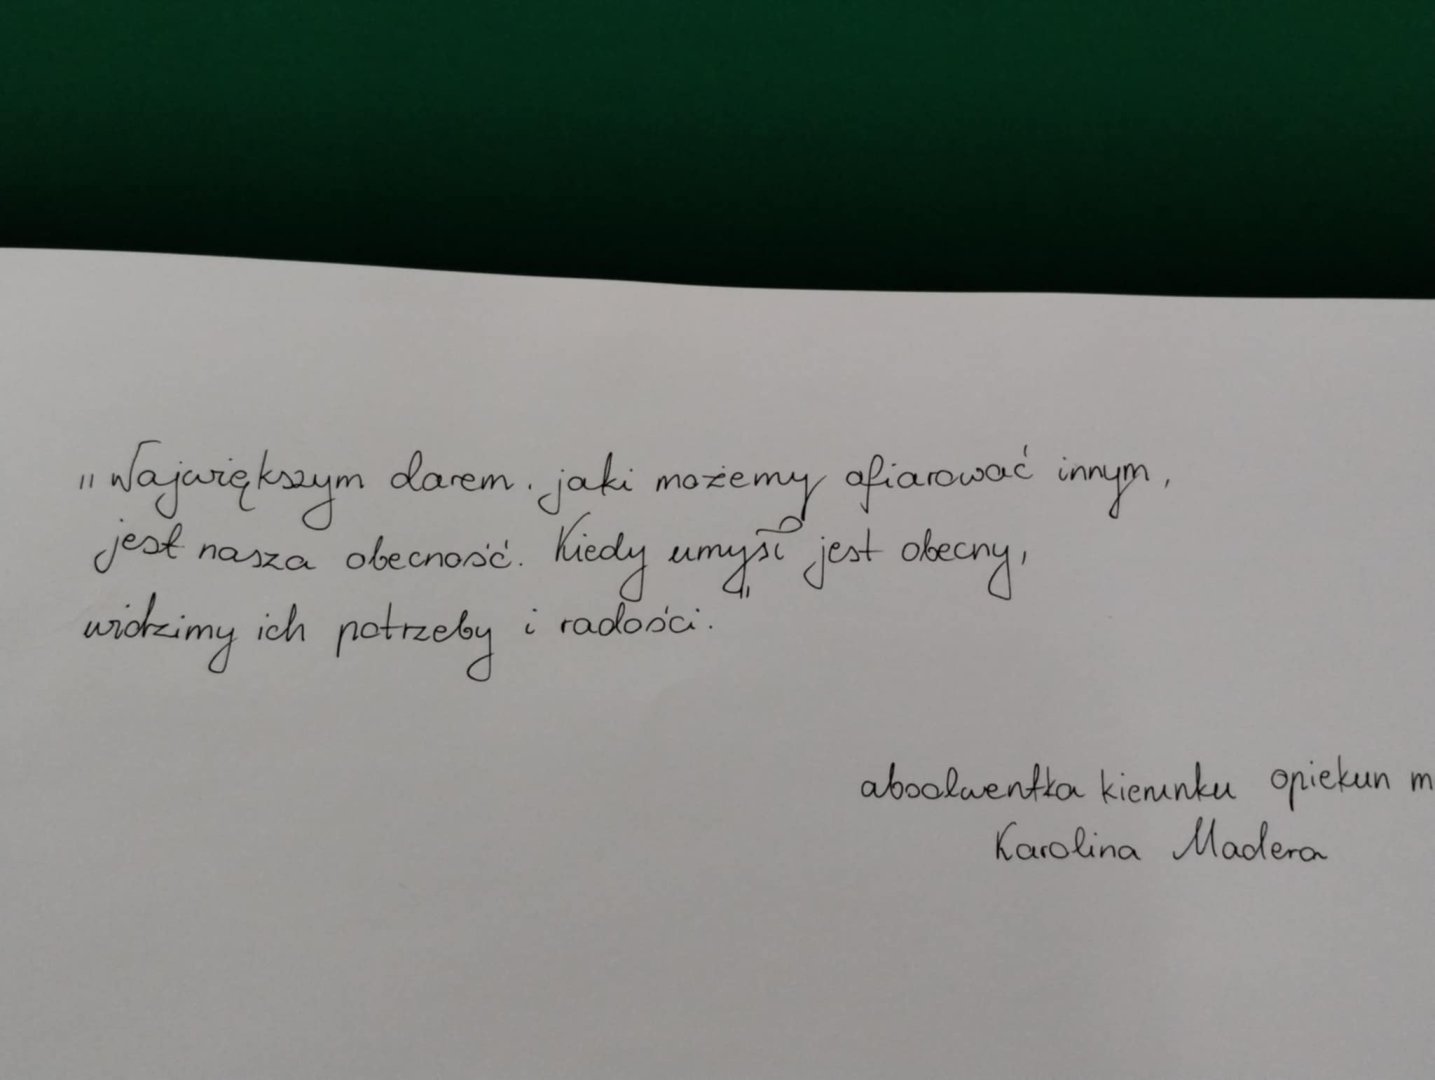 "Największym darem, jaki możemy ofiarować innym,
jest nasza obecność. Kiedy umysł jest obecny,
widzimy ich potrzeby i radości."
absolwentka kierunku opiekun m
Karolina Madera